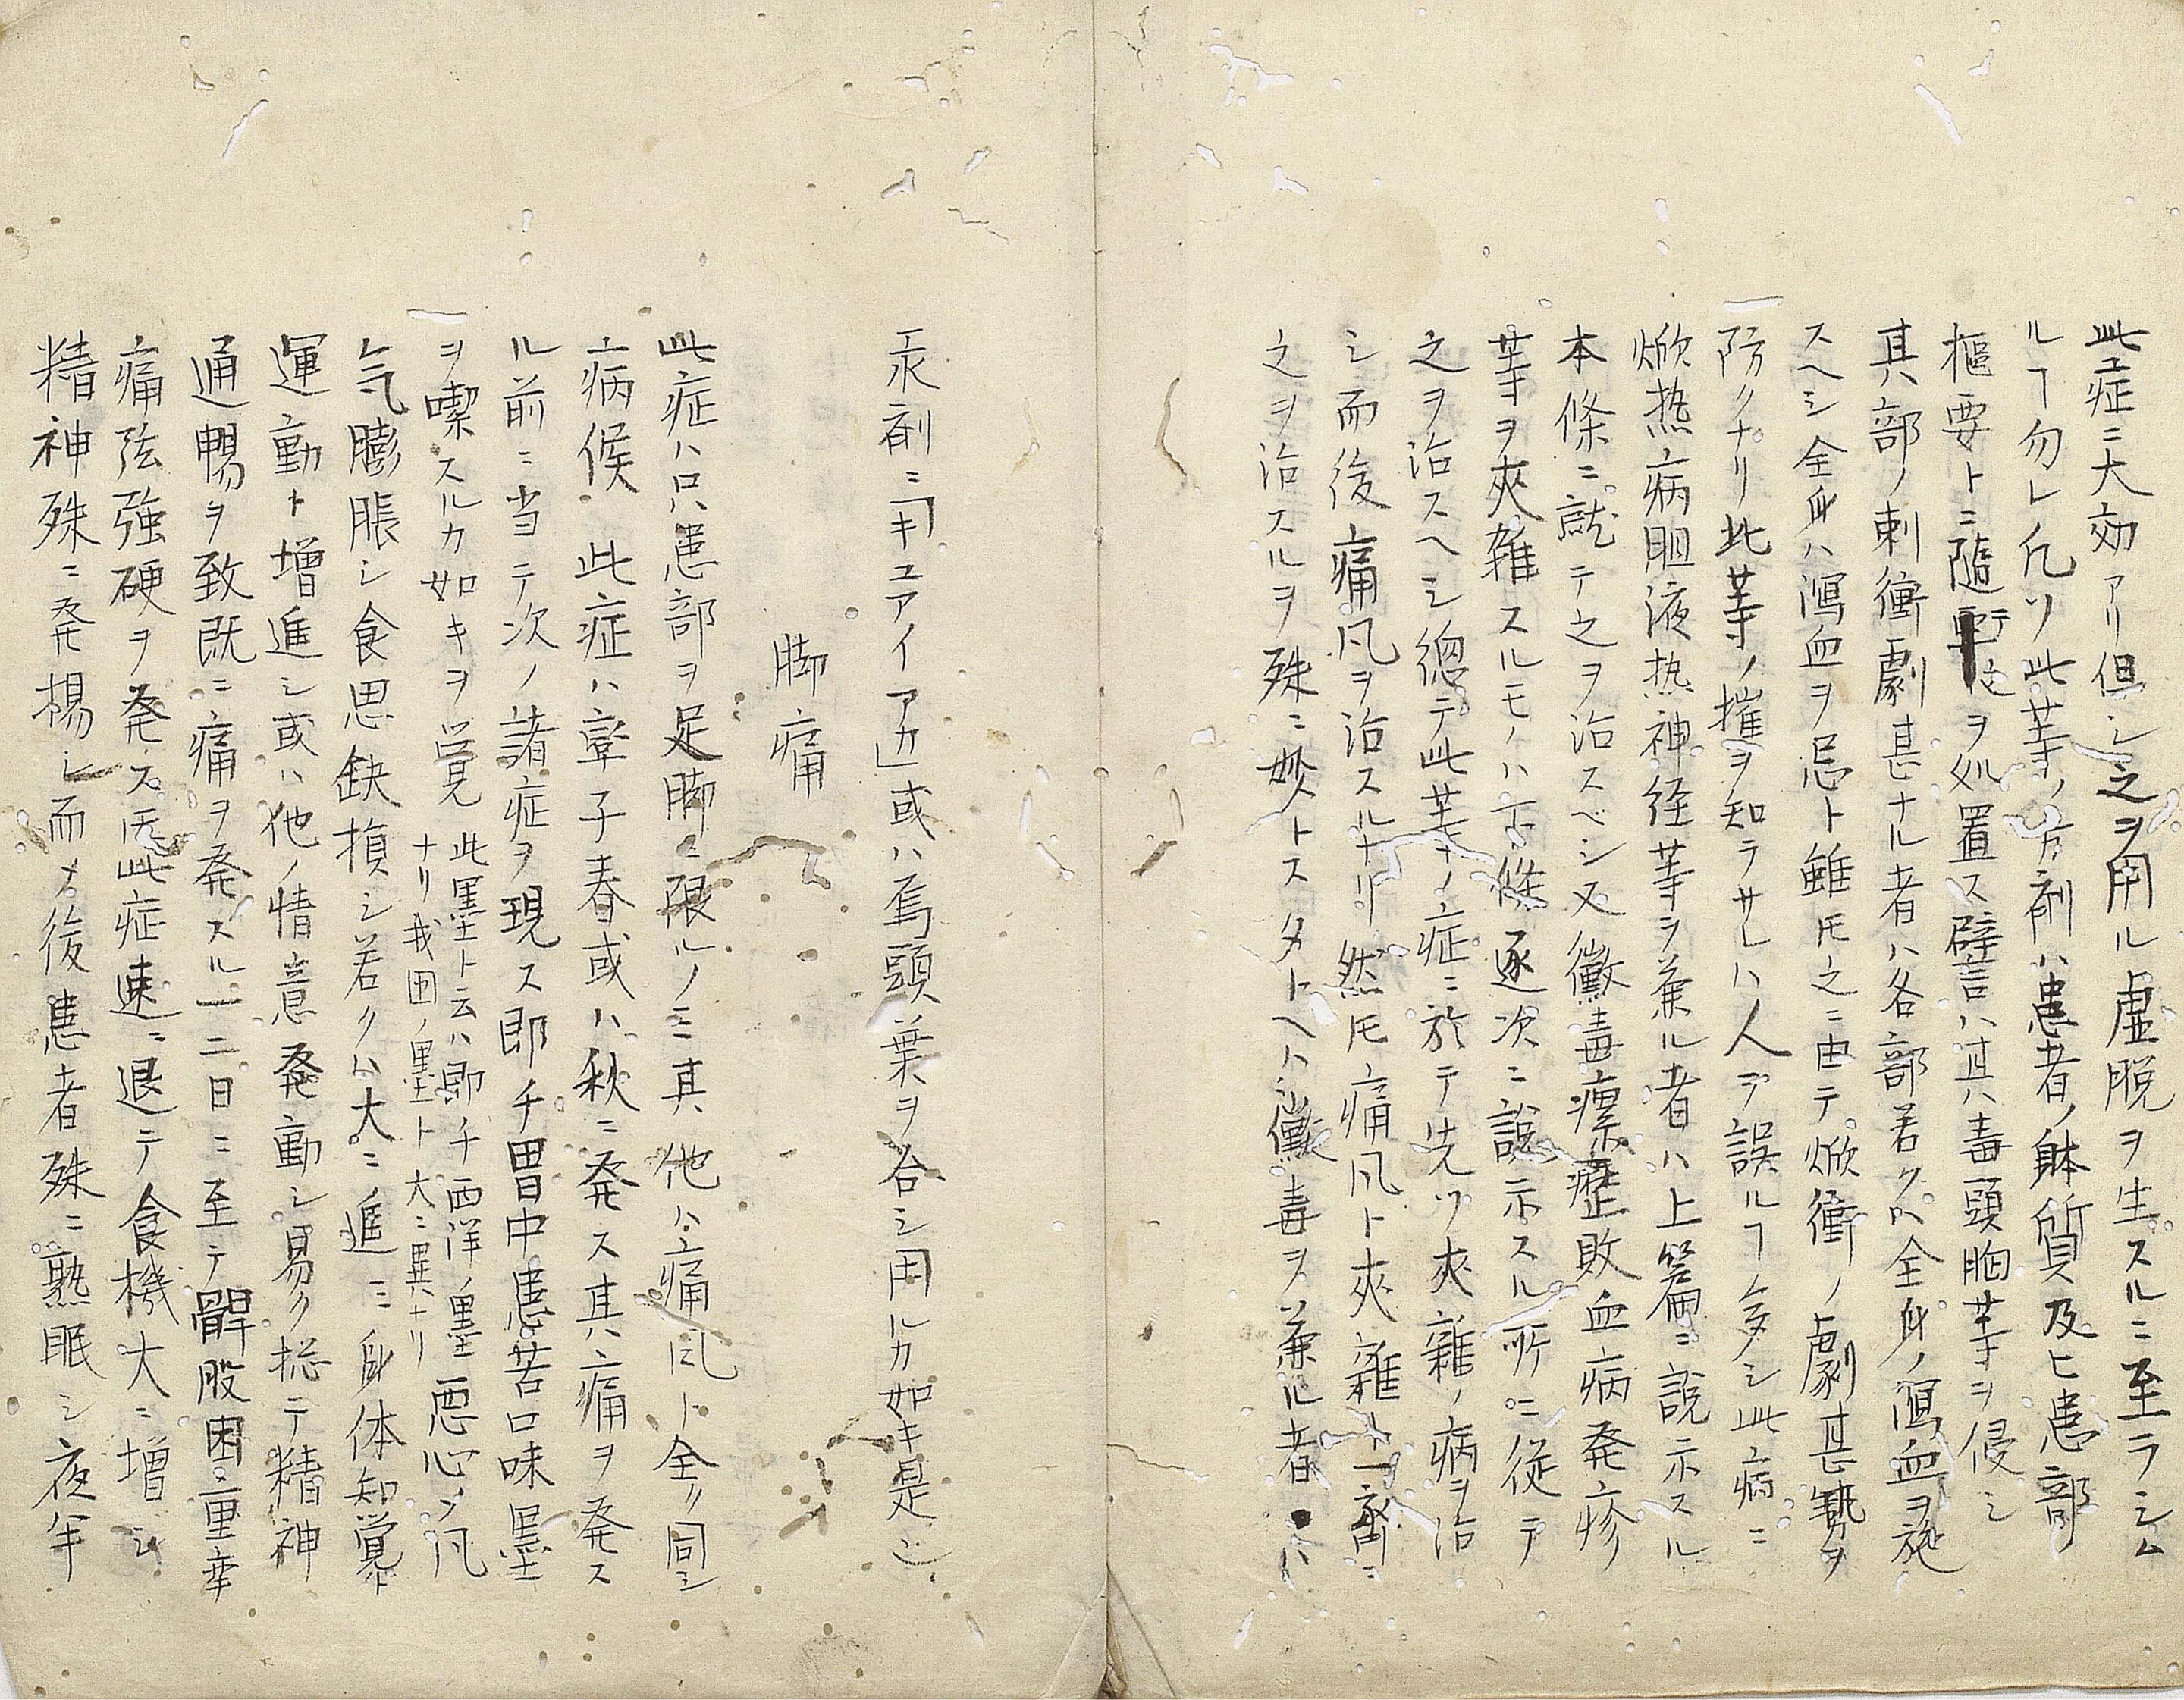 此症ニ大効アリ但シ之ヲ用ル虚脱ヲ生スルニ至ラシム
ルヿ勿レ凡ソ此等ノ方剤ハ患者ノ躰質及ヒ患部
枢要トニ随之ヲ処置ス譬言ハ其ハ毒頭胸等ヲ侵シ
其ハ部ノ刺衝劇甚ナル者ハ各部若クハ全身ノ瀉血ヲ施
スヘシ全身ハ瀉血ヲ忌ト雖𪜈之ニ由テ焮衝ノ劇甚勢ヲ
防クナリ此等ノ摧ヲ知ラサレハ人ヲ誤ルヿ多シ此病ニ
焮热病胆液热神経等ヲ兼ル者ハ上篇ニ説示スル
本條ニ就テ之ヲ治スベシ又黴毒瘰歴敗血病発疹
等ヲ夾雑スルモノハ下條逐次ニ説示スル所ニ従テ
之ヲ治スヘシ總テ此等ノ症ニ於テ先ツ夾雑ノ病ヲ治
シ而後痛凨ヲ治スルナリ然𪜈痛凨ト夾雑ト一齊ニ
之ヲ治スルヲ殊ニ妙トスタトヘハ黴毒ヲ兼ル者ハ
汞剤ニ「キユアイアカ」或ハ烏頭葉ヲ合シ用ルカ如キ是ﾆ
脚痛
此症ハ只患部ヲ足脚ニ限ルノミ其他ハ痛风ト全ク同シ
病候 此症ハ章子春或ハ秋ニ発ス其痛ヲ発ス
ル前ニ当テ次ノ諸症ヲ現ス即チ胃中患苦口味墨
ヲ喫スルカ如キヲ覚 此墨ト云ハ即チ西洋ノ墨 悪心シ凡
ナリ我国ノ墨ト大ニ異ナリ
气膨脹シ食思缺損シ若クハ大ニ進ミ身体知覚ト
運動ト増進シ或ハ他ノ情意発動シ易ク捴テ精神
通暢ヲ致既ニ痛ヲ発スル一二日ニ至テ髀股困重牽
痛弦強硬ヲ発ス医此症速ニ退テ食機大ニ増シ
精神殊ニ発揚シ而メ後患者殊ニ熟眠シ夜半